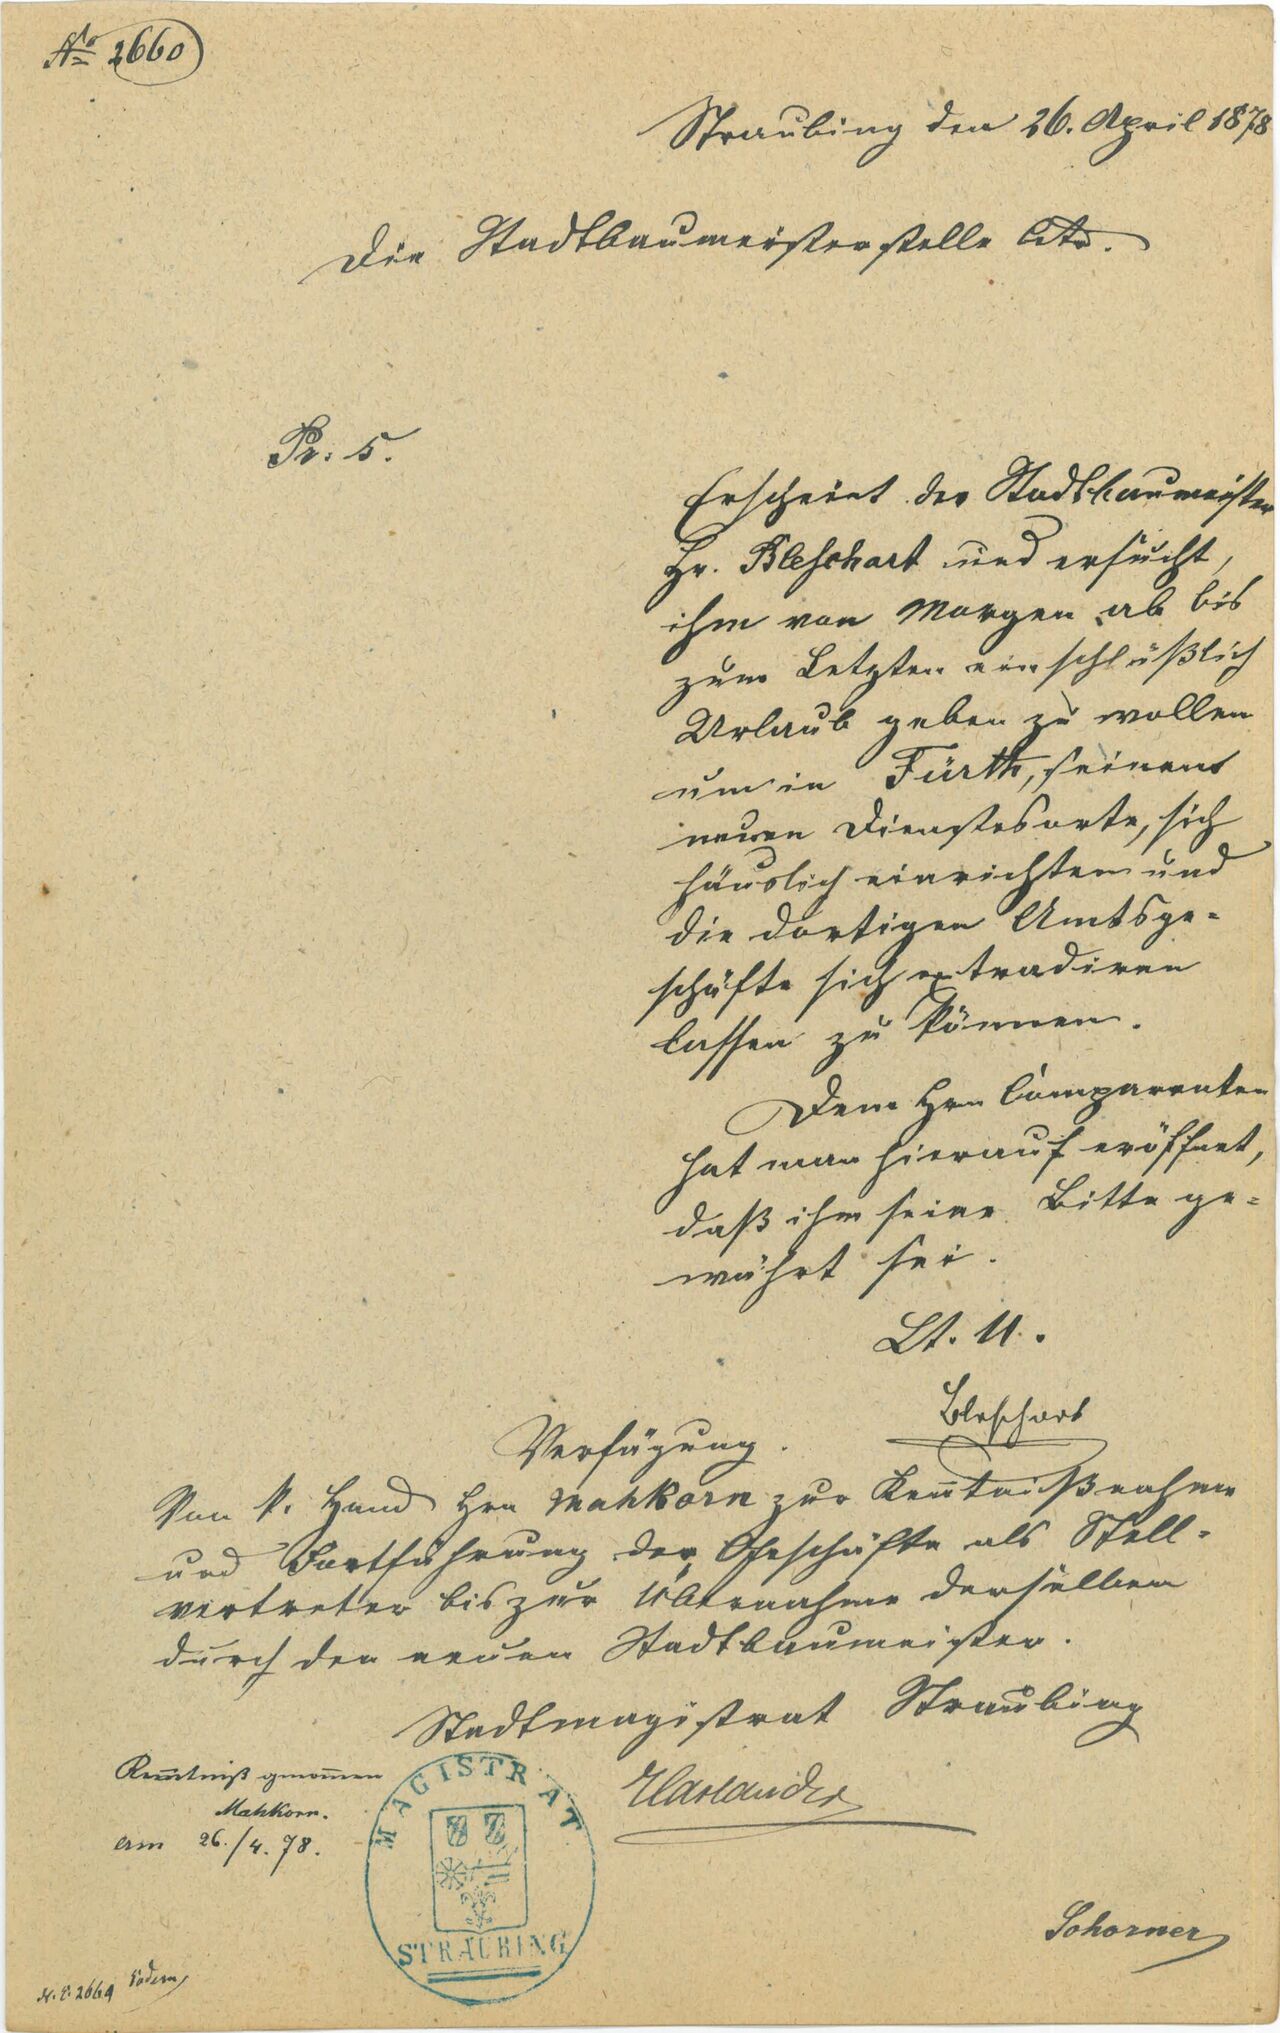 No 2660
Straubing den 26. April 1878
Die Stadtbaumeisterstelle btr.
Pr: 5.
Erscheint der Stadtbaumeister
Hr. Bleschart und ersucht,
ihm von Morgen ab bis
zum Letzten einschlüßlich
Urlaub geben zu wollen
um in Fürth, seinem
neuen Dienstesorte, sich
häuslich einrichten und
die dortigen Amtsge=
schäfte sich extradiren
lassen zu können.
Dem Hrn Comparenten
hat man hierauf eröffnet,
daß ihm seine Bitte ge=
währt sei.
Lt. U.
Bleschart
Verfügung.
Von k. Hand Hrn Mahkorn zur Kenntnißnahme
und Fortführung der Geschäfte als Stell=
vertreter bis zur Übernahme derselben
durch den neuen Stadtbaumeister.
Stadtmagistrat Straubing
Harlander
Kenntniß genommen
Mahkorn.
am 26./4. 78.
MAGISTRAT
STRAUBING
Schorner
N. E. 2664